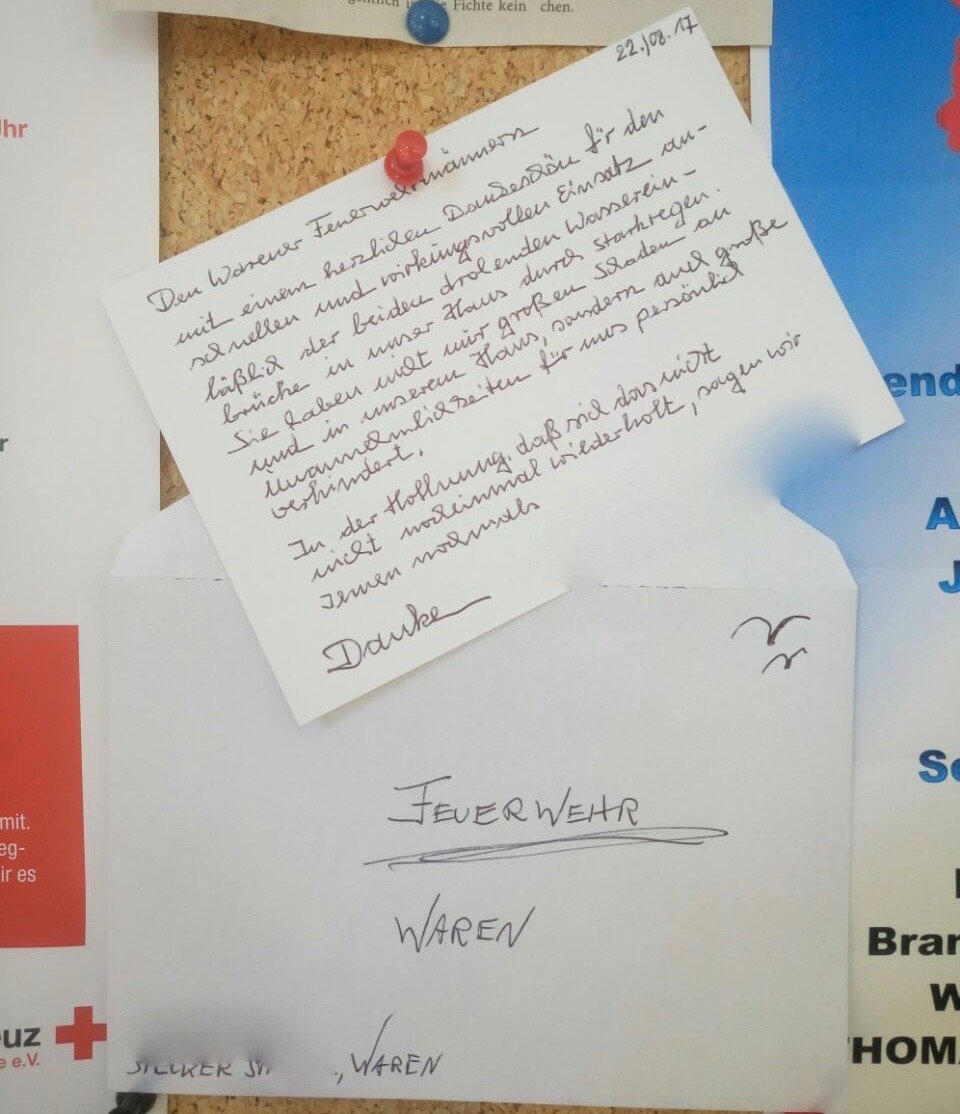 Fichte kein chen.
22./08.17
Den Warener Feuerwehrmännern
mit einem herzlichen Dankeschön für den
schnellen und wirkungsvollen Einsatz an-
läßlich der beiden drohenden Wasserein-
brüche in unser Haus durch Starkregen.
Sie haben nicht nur großen Schaden an
und in unserem Haus, sondern auch große
Unannehmlichkeiten für uns persönlich
verhindert.
In der Hoffnung, daß sich das nicht
nicht nocheinmal wiederholt, sagen wir
Ihnen nochmals
Danke
FEUERWEHR
WAREN
, WAREN
Uhr
r
mit.
eg-
ir es
euz
e e.V.
end
A
J
Se
Bran
W
THOMA